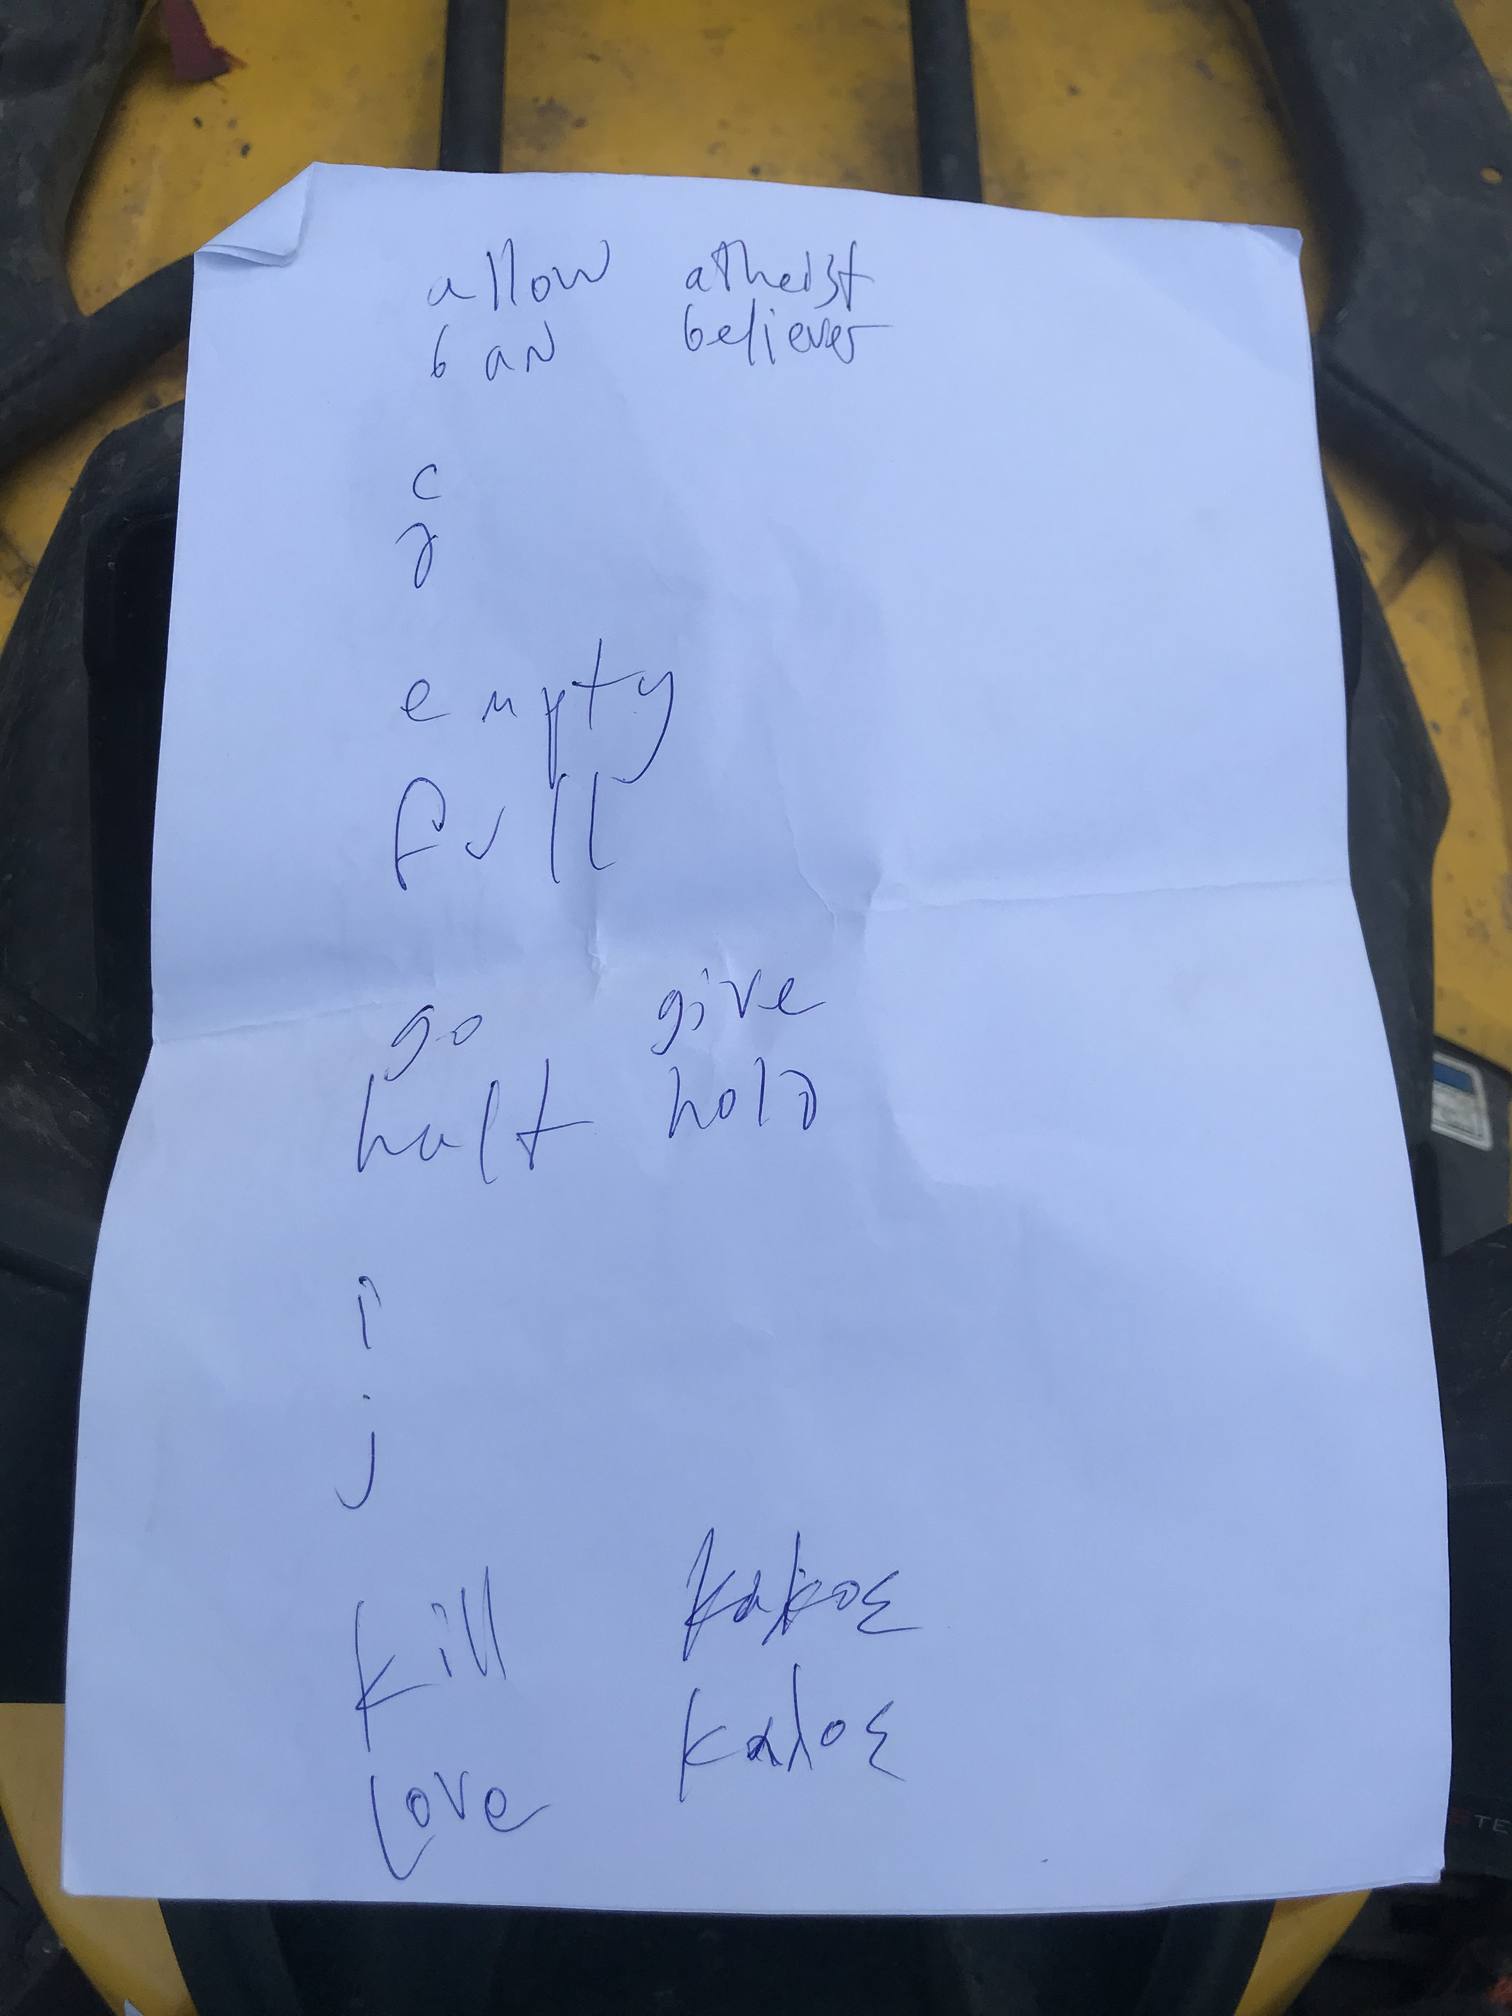 allow atheist
ban believer
c
d
empty
full
go give
halt hold
i
j
kill κακος
love καλος
TE